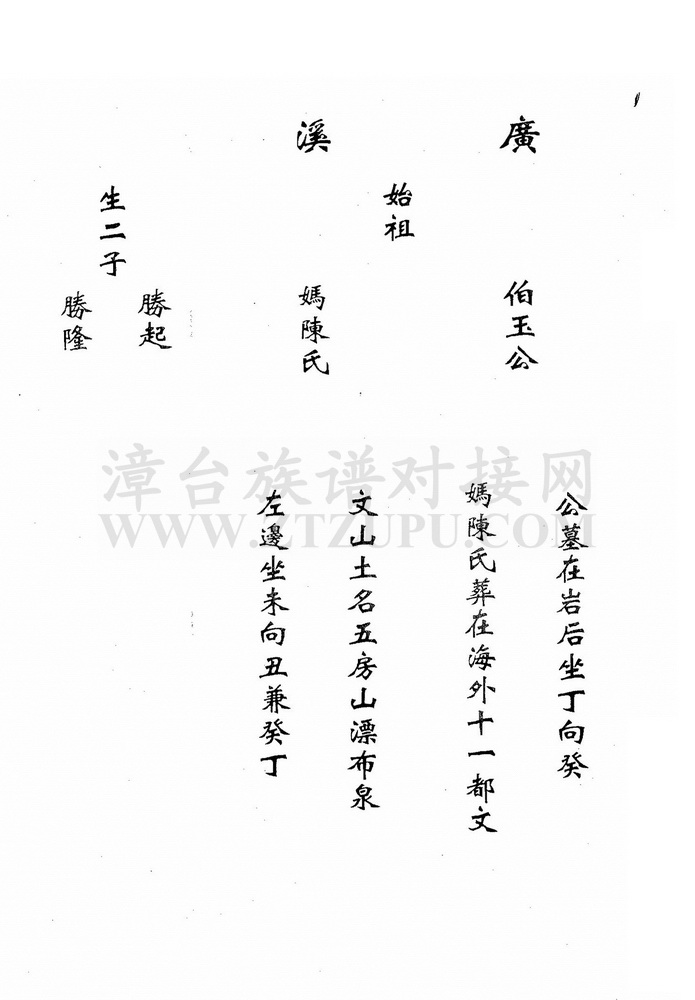 廣
溪
始祖
伯玉公
媽陳氏
生二子
勝起
勝隆
公墓在岩后坐丁向癸
媽陳氏葬在海外十一都文
文山土名五房山漂布泉
左邊坐未向丑兼癸丁
漳台族谱对接网
WWW.ZTZUPU.COM